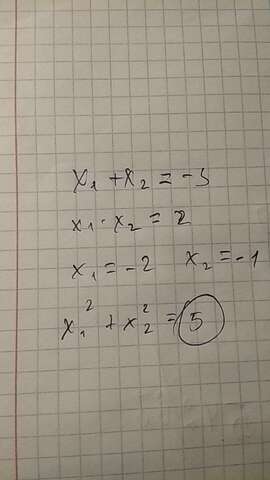 x₁ + x₂ = -3
x₁ · x₂ = 2
x₁ = -2 x₂ = -1
x₁² + x₂² = 5